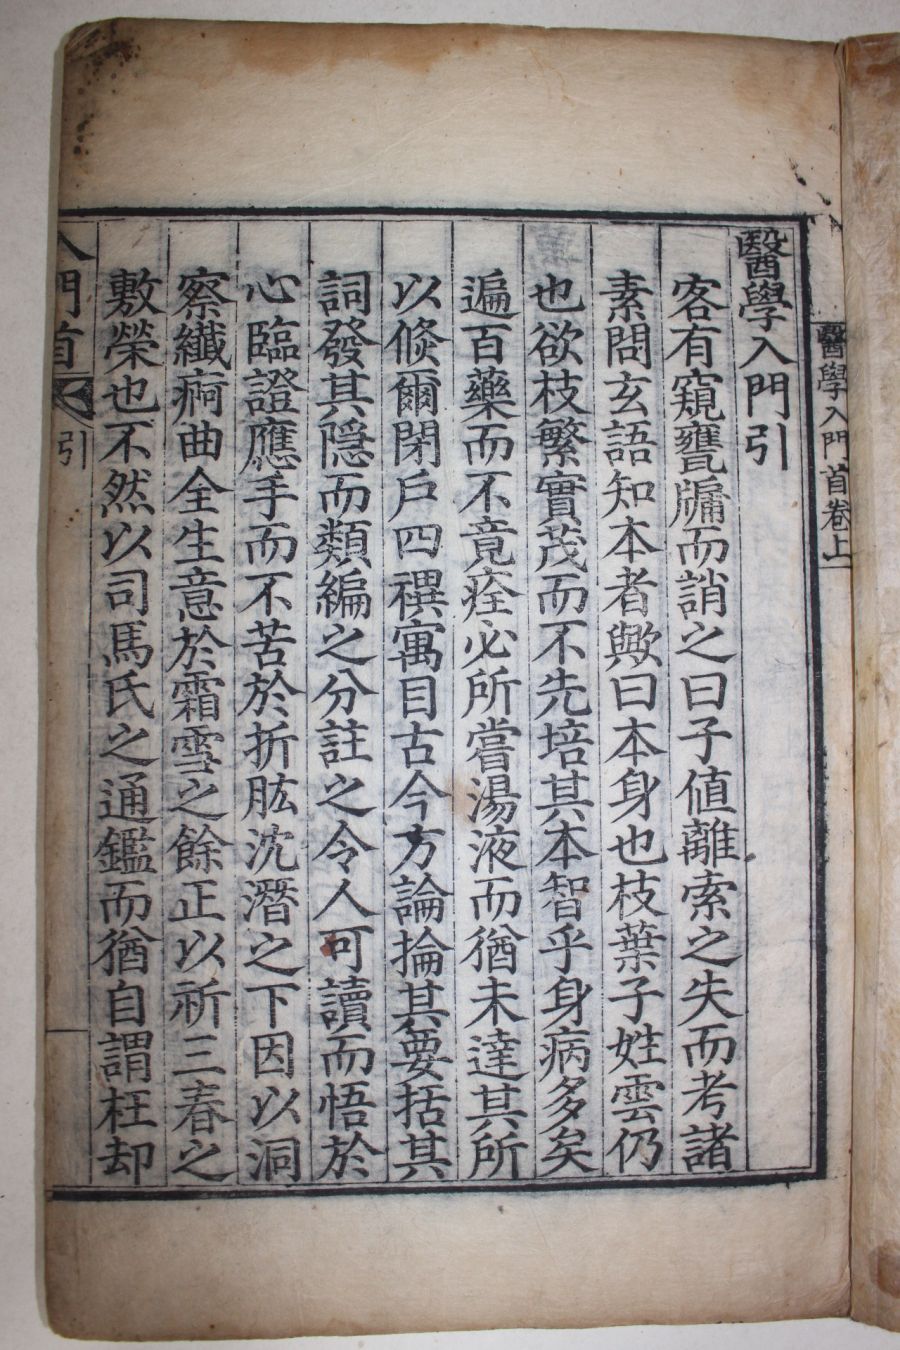 醫學入門首卷上
醫學入門引
客有窺甕牖而誚之曰子值離索之失而考諸
素問玄語知本者歟曰本身也枝葉子姓雲仍
也欲枝繁實茂而不先培其本智乎身病多矣
遍百藥而不竟痊必所嘗湯液而猶未達其所
以倐爾閉戶四禩寓目古今方論掄其要括其
詞發其隠而類編之分註之令人可讀而悟於
心臨證應手而不苦於折肱沈潛之下因以洞
察纖痾曲全生意於霜雪之餘正以祈三春之
敷榮也不然以司馬氏之通鑑而猶自謂枉却
入門首
引